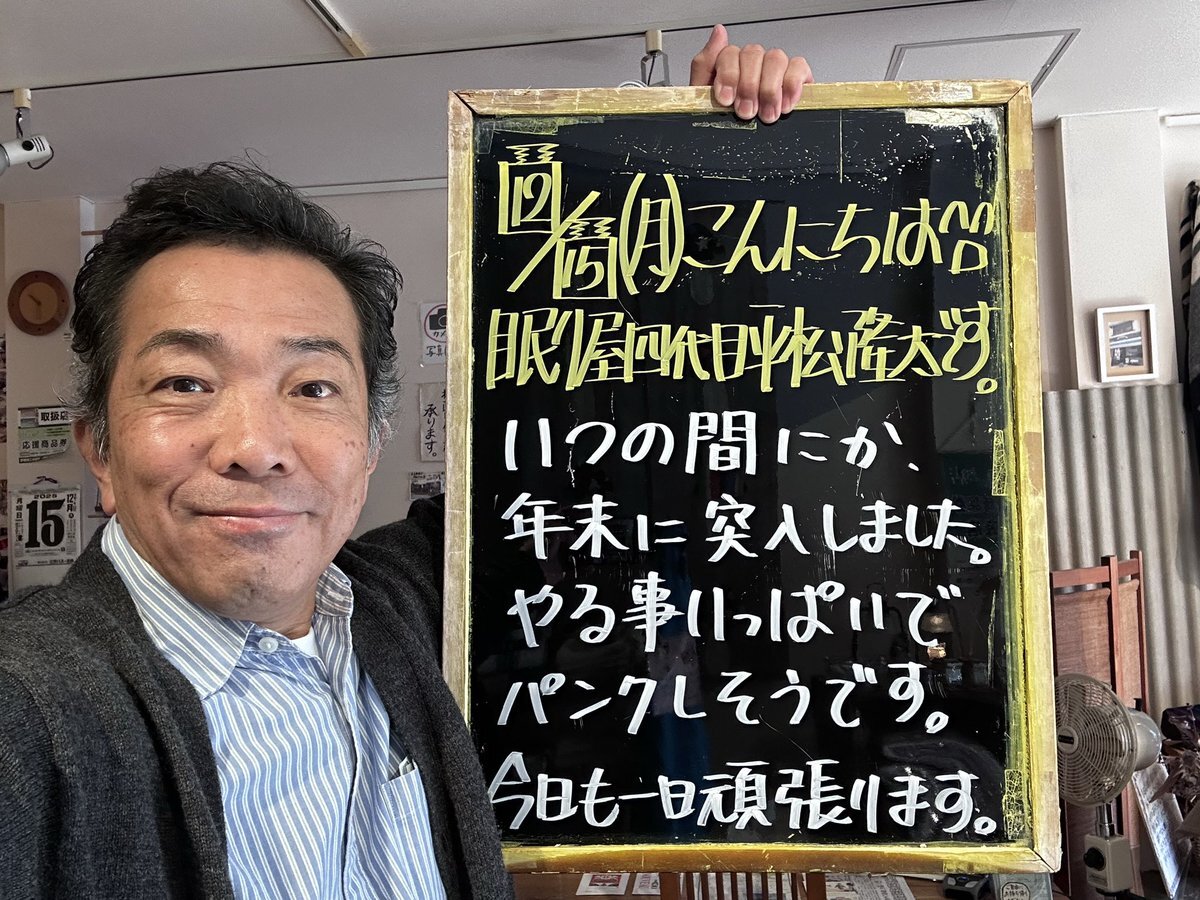 12/15(月)こんにちは
眠り屋四代目平松隆太です。
いつの間にか、
年末に突入しました。
やる事いっぱいで
パンクしそうです。
今日も一日頑張ります。
カメ
写真
承ります。
取扱店
応援商品券
2025
12月
15
月曜日